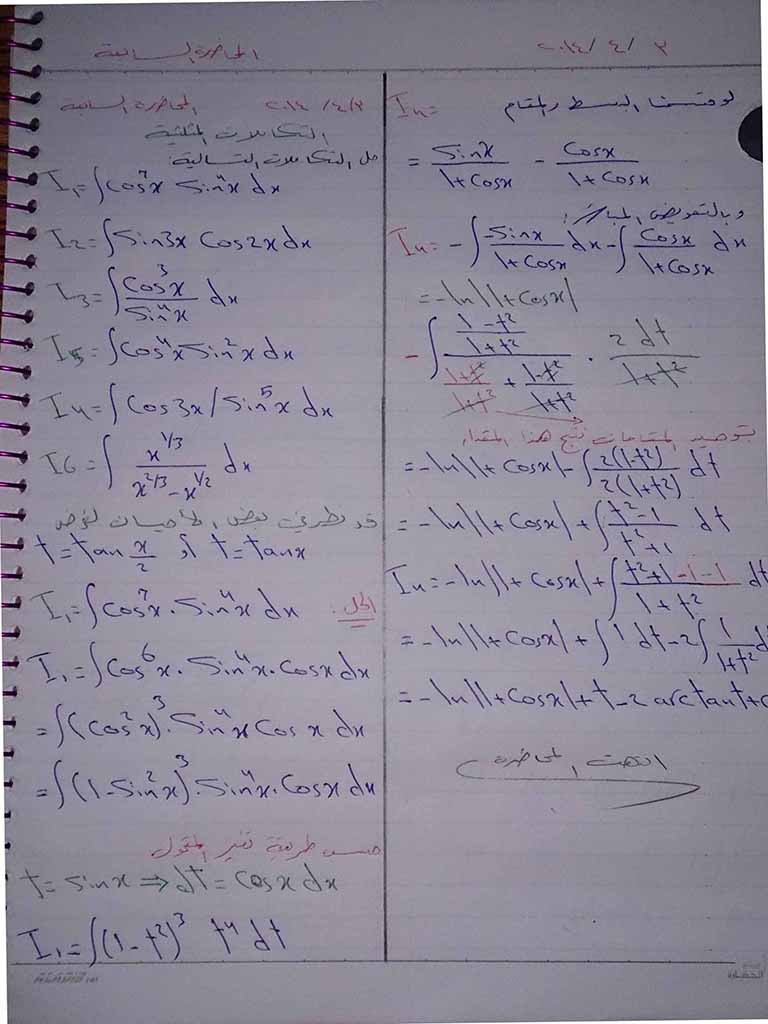 المحاضرة السابعة
٢٠١٤/ ٤/ ٢
المحاضرة السابعة ٢٠١٤ /٤/٢
التكاملات المثلثية
حل التكاملات التالية:
I₁=∫cos⁷x sin⁴x dx
I₂=∫sin3x cos2x dx
I₃=∫cos³x/sin⁴x dx
I₅=∫cos⁴x sin²x dx
I₄=∫cos3x/sin⁵x dx
I6=∫ x^(1/3)/(x^(2/3)-x^(1/2)) dx
قد نضطر في بعض الأحيان لفرض
t=tan x/2 أو t=tanx
I₁=∫cos⁷x·sin⁴x dx الحل:
I₁=∫cos⁶x·sin⁴x·cosx dx
=∫(cos²x)³·sin⁴x cos x dx
=∫(1-sin²x)³·sin⁴x·cosx dx
حسب طريقة تغيير المتحول
t=sinx ⇒ dt=cosx dx
I₁=∫(1-t²)³ t⁴ dt
I₄= البسط والمقام
= sinx/(1+cosx) - cosx/(1+cosx)
وبالتعويض المباشر:
I₄=-∫-sinx/(1+cosx) dx-∫cosx/(1+cosx) dx
=-ln|1+cosx|
-∫((1-t²)/(1+t²))/((1+t²)/(1+t²)+(1-t²)/(1+t²)) · 2dt/(1+t²)
بتوحيد المقامات نتج هذا المقدار
=-ln|1+cosx|-∫2(1-t²)/2(1+t²) dt
=-ln|1+cosx|+∫(t²-1)/(t²+1) dt
I₄=-ln|1+cosx|+∫(t²+1-1-1)/(1+t²) dt
=-ln|1+cosx|+∫1 dt-2∫1/(1+t²) d
=-ln|1+cosx|+t-2arctant+c
انتهت المحاضرة